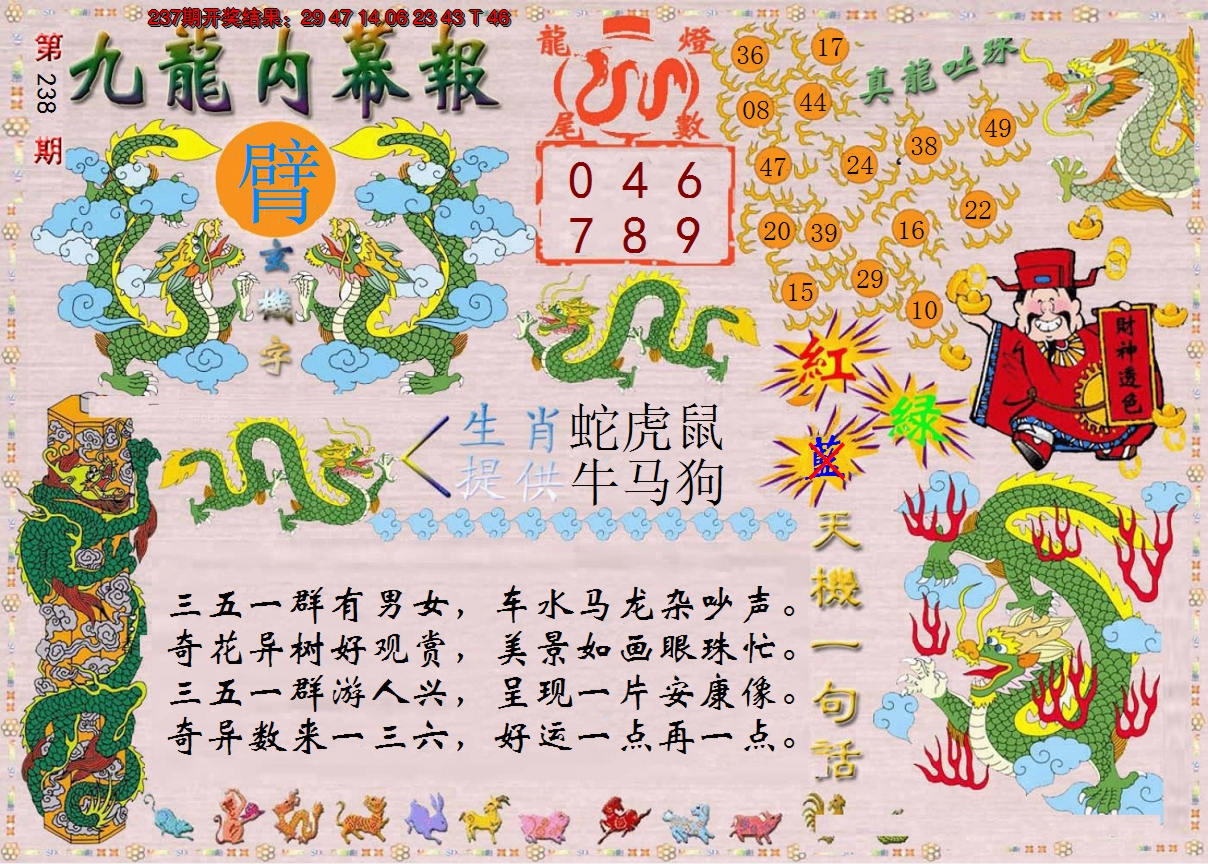 237期开奖结果：29 47 14 06 23 43 T 46
第238期
九龍内幕報
臂
玄機字
龍燈
尾數
0 4 6
7 8 9
真龍吐珠
36 17
08 44
47 24 38 49
20 39 16 22
15 29 10
財神透色
紅
綠
藍
生肖 蛇虎鼠
提供 牛马狗
天機一句話
三五一群有男女，车水马龙杂吵声。
奇花异树好观赏，美景如画眼珠忙。
三五一群游人兴，呈现一片安康像。
奇异数来一三六，好运一点再一点。